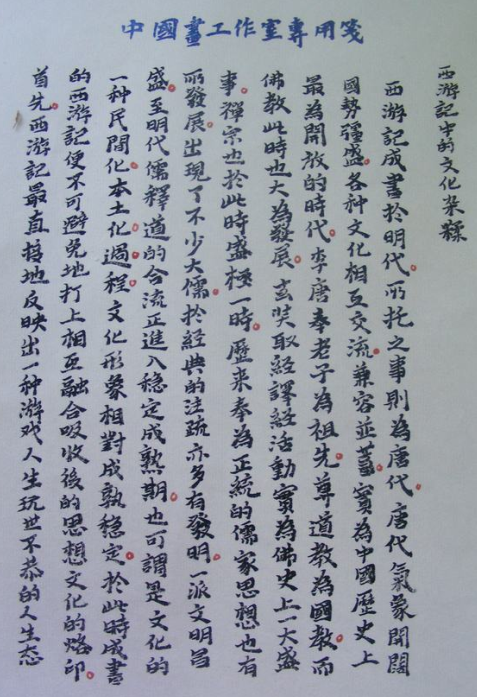 中國畫工作室專用箋
西游記中的文化杂糅
西游記成書於明代。所托之事則為唐代。唐代氣象開闊
國勢強盛。各种文化相互交流。兼容並蓄。實為中國歷史上
最為開放的時代。李唐奉老子為祖先。尊道教為國教。而
佛教此時也大為發展。玄奘取經譯經活動實為佛史上一大盛
事。禪宗也於此時盛極一時。歷来奉為正統的儒家思想也有
所發展。出現了不少大儒。於經典的注疏亦多有發明。一派文明昌
盛。至明代儒釋道的合流正進入穩定成熟期。也可謂是文化的
一种民間化。本土化。過程。文化形象相對成孰穩定。於此時成書
的西游記便不可避免地打上相互融合吸收後的思想文化的烙印。
首先。西游記最直接地反映出一种游戏人生玩世不恭的人生态